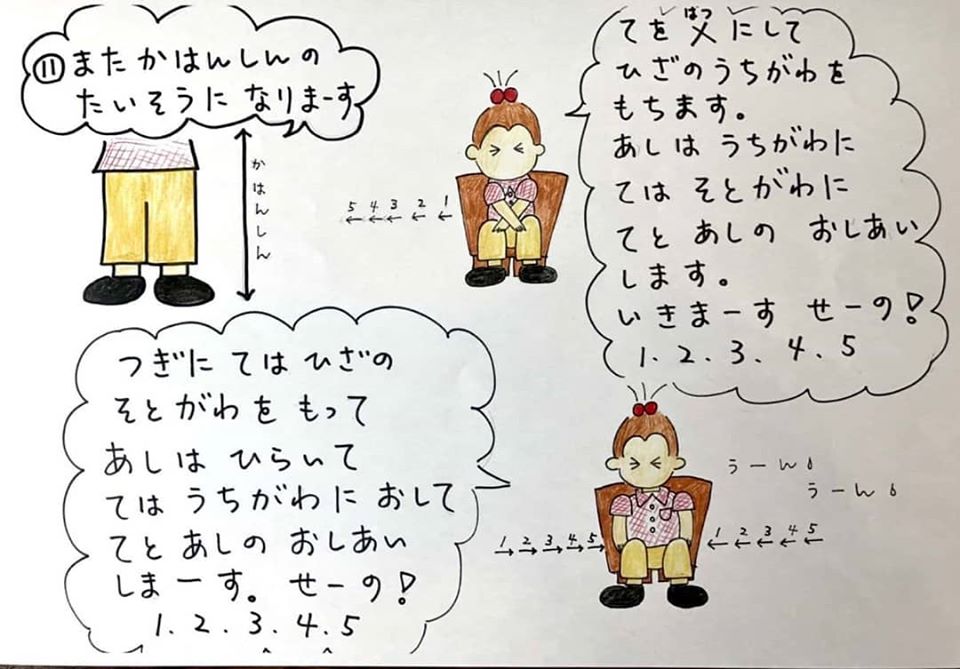 ⑪またかはんしんの
たいそうに なりまーす
かはんしん
てを 乂 にして
ばつ
ひざのうちがわを
もちます。
あしは うちがわに
ては そとがわに
てと あしの おしあい
します。
いきまーす せーの!
1.2.3.4.5
5 4 3 2 1
つぎに ては ひざの
そとがわを もって
あしは ひらいて
ては うちがわに おして
てと あしの おしあい
しまーす。 せーの!
1.2.3.4.5
うーん
うーん
1 2 3 4 5
1 2 3 4 5